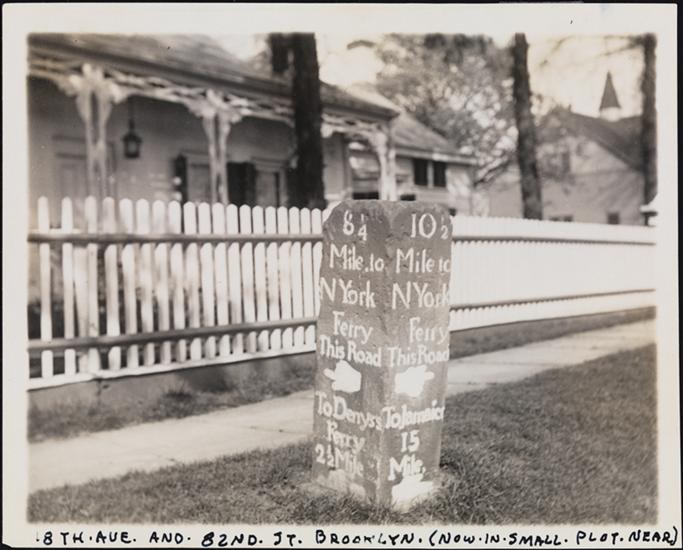 8¼
Mile.to
N York
Ferry
This Road
To Denys's
Ferry
2½ Mile
10½
Mile to
N York
Ferry
This Road
To Jamaica
15
Mile.
18TH. AVE. AND. 82ND. ST. BROOKLYN. (NOW. IN. SMALL. PLOT. NEAR)